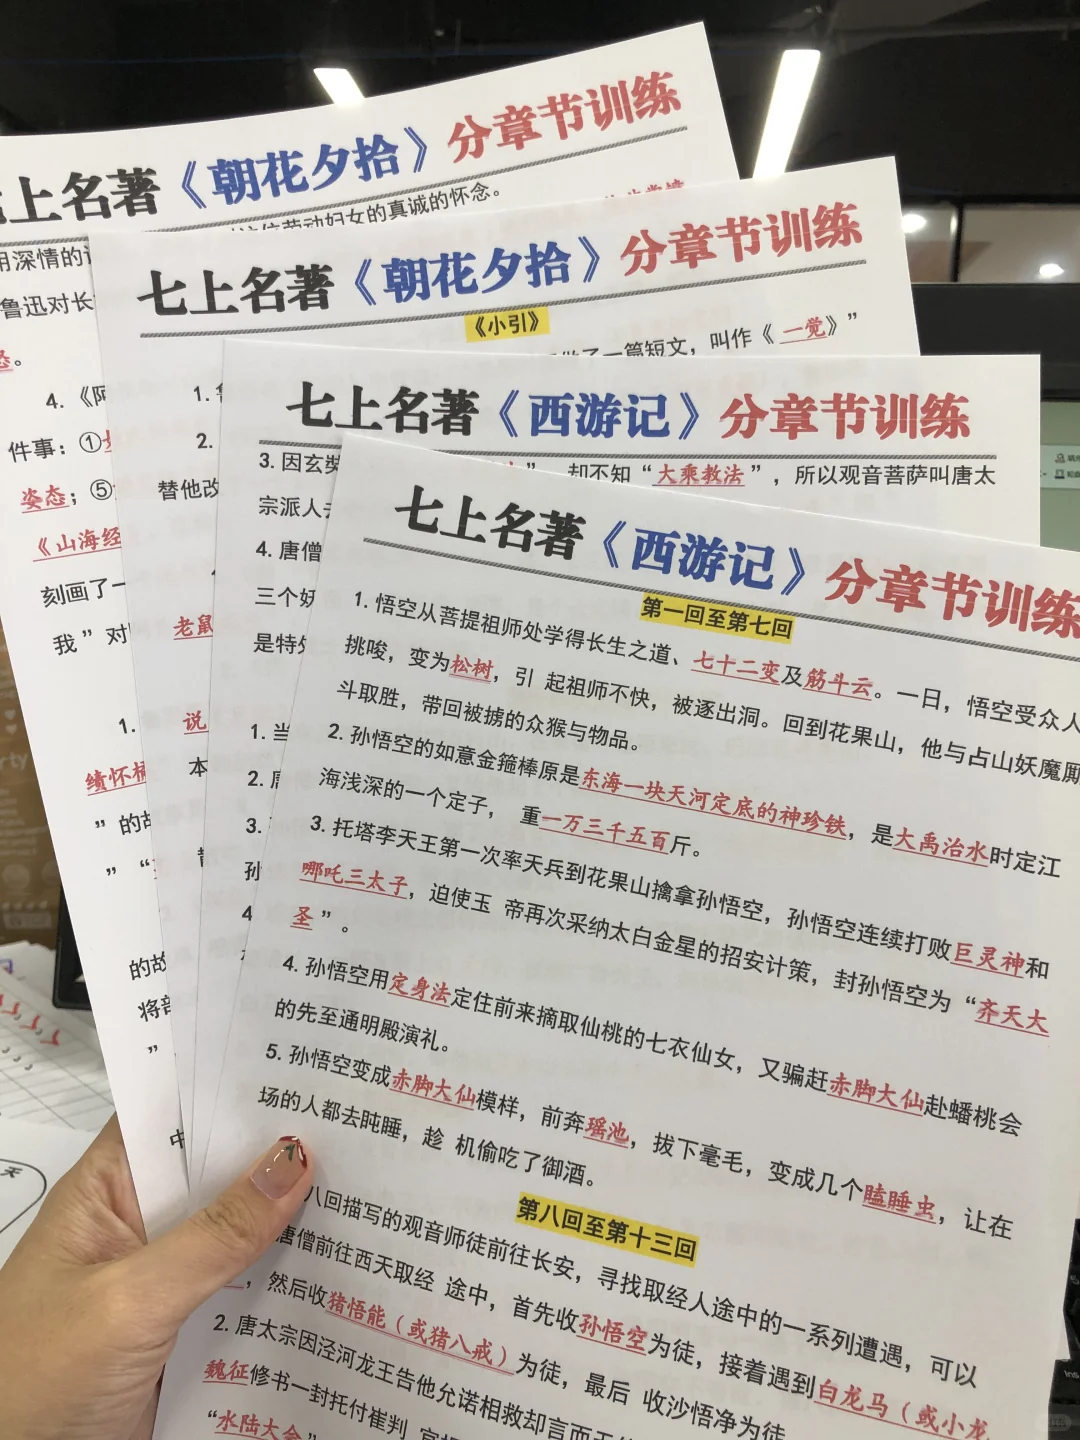 七上名著《朝花夕拾》分章节训练
劳动妇女的真诚的怀念。
用深情的
鲁迅对长
4.《阿
件事：①
姿态；⑤
《山海经
刻画了一
我”对
1.
绩怀桶
”的故
”“
的故
将部
”
七上名著《朝花夕拾》分章节训练
《小引》
了一篇短文，叫作《一觉》”
1.
2.
替他改
老鼠
说
本
七上名著《西游记》分章节训练
3. 因玄奘
”，却不知“大乘教法”，所以观音菩萨叫唐太
宗派人去
4. 唐僧
三个妖
是特处
1. 当
2.
3.
孙
4
七上名著《西游记》分章节训练
第一回至第七回
1. 悟空从菩提祖师处学得长生之道、七十二变及筋斗云。一日，悟空受众人
挑唆，变为松树，引 起祖师不快，被逐出洞。回到花果山，他与占山妖魔厮
斗取胜，带回被掳的众猴与物品。
2. 孙悟空的如意金箍棒原是东海一块天河定底的神珍铁，是大禹治水时定江
海浅深的一个定子， 重一万三千五百斤。
3. 托塔李天王第一次率天兵到花果山擒拿孙悟空，孙悟空连续打败巨灵神和
哪吒三太子，迫使玉 帝再次采纳太白金星的招安计策，封孙悟空为“齐天大
圣”。
4. 孙悟空用定身法定住前来摘取仙桃的七衣仙女，又骗赶赤脚大仙赴蟠桃会
的先至通明殿演礼。
5. 孙悟空变成赤脚大仙模样，前奔瑶池，拔下毫毛，变成几个瞌睡虫，让在
场的人都去盹睡，趁 机偷吃了御酒。
第八回至第十三回
八回描写的观音师徒前往长安，寻找取经人途中的一系列遭遇，可以
唐僧前往西天取经 途中，首先收孙悟空为徒，接着遇到白龙马（或小龙
，然后收猪悟能（或猪八戒）为徒，最后 收沙悟净为徒
2. 唐太宗因泾河龙王告他允诺相救却言而
魏征修书一封托付崔判
“水陆大会”